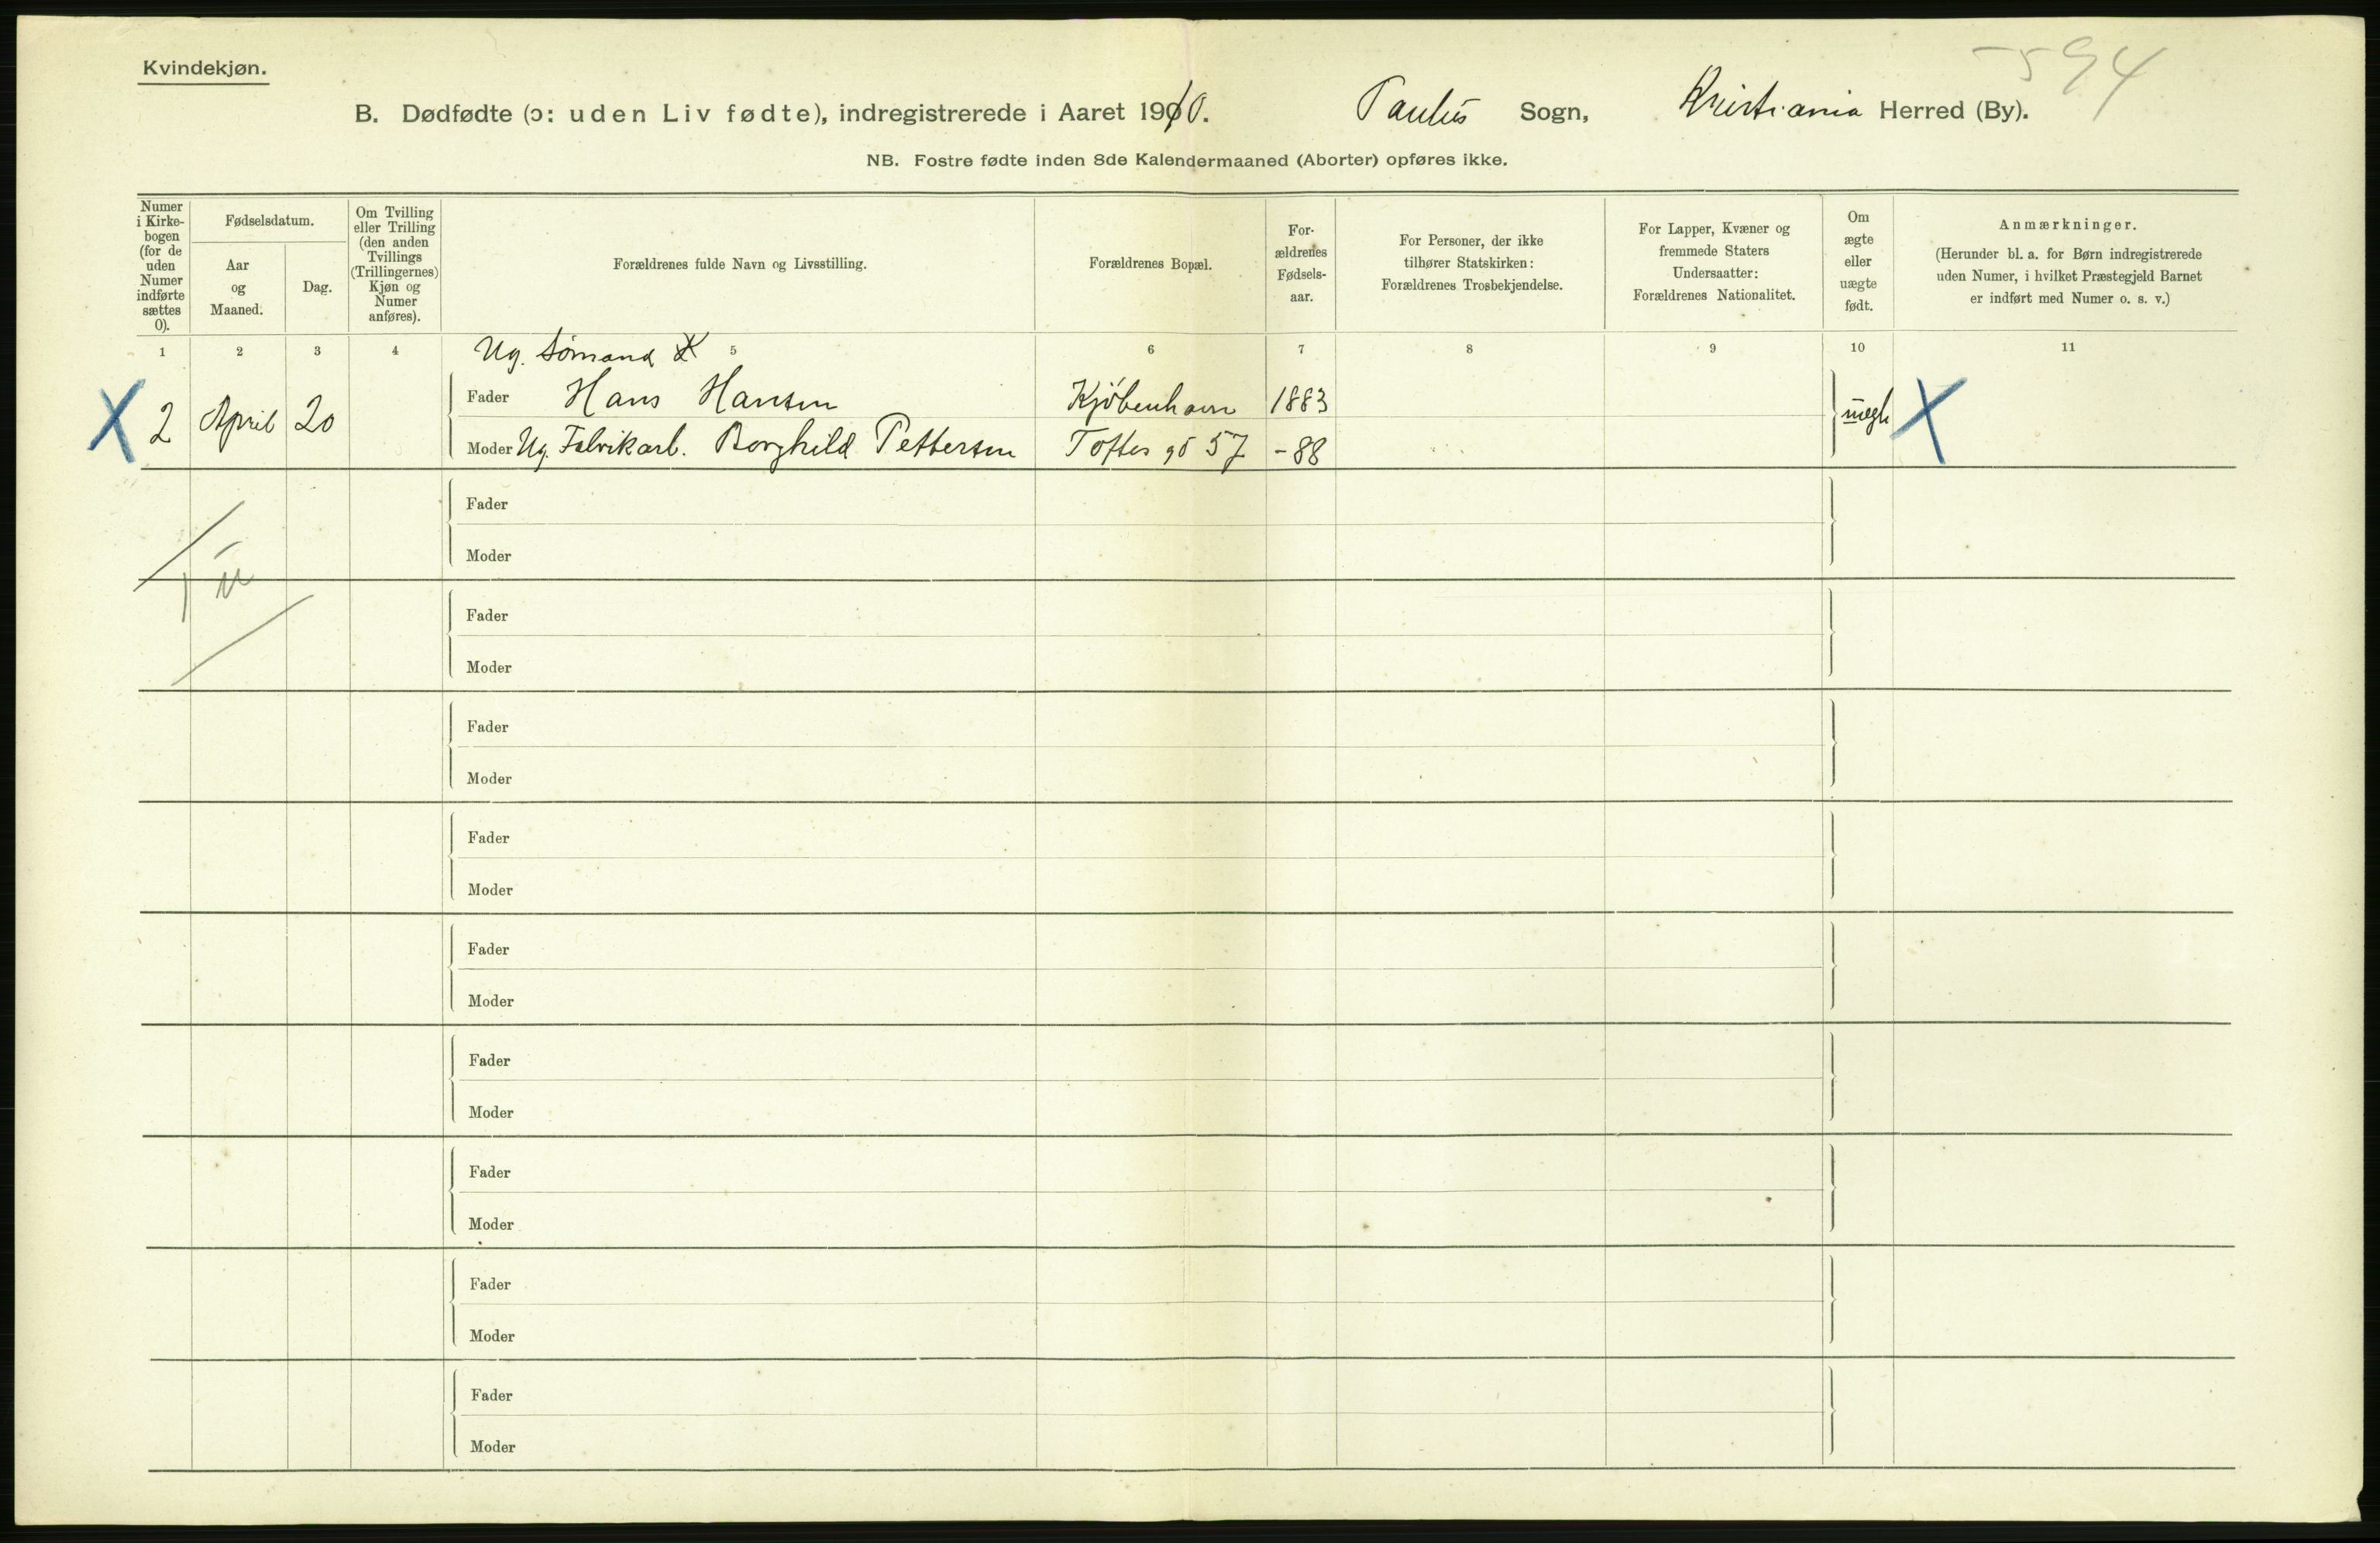 Kvindekjøn.
594
B. Dødfødte (ɔ: uden Liv fødte), indregistrerede i Aaret 1910. Paulus Sogn, Kristiania Herred (By).
NB. Fostre fødte inden 8de Kalendermaaned (Aborter) opføres ikke.
Numer i Kirkebogen (for de uden Numer indførte sættes 0).
Fødselsdatum.
Aar og Maaned.
Dag.
Om Tvilling eller Trilling (den anden Tvillings (Trillingernes) Kjøn og Numer anføres).
Forældrenes fulde Navn og Livsstilling.
Forældrenes Bopæl.
Forældrenes Fødselsaar.
For Personer, der ikke tilhører Statskirken: Forældrenes Trosbekjendelse.
For Lapper, Kvæner og fremmede Staters Undersaatter: Forældrenes Nationalitet.
Om ægte eller uægte født.
Anmærkninger.
(Herunder bl. a. for Børn indregistrerede uden Numer, i hvilket Præstegjeld Barnet er indført med Numer o. s. v.)
1 2 3 4 5 6 7 8 9 10 11
Ug. Sømand
X 2 April 20 Fader Hans Hansen Kjøbenhavn 1883 uægte X
Moder Ug. Fabrikarb. Borghild Pettersen Toftes gd 57 -88
Fader
Moder
Fader
Moder
Fader
Moder
Fader
Moder
Fader
Moder
Fader
Moder
Fader
Moder
Fader
Moder
Fader
Moder